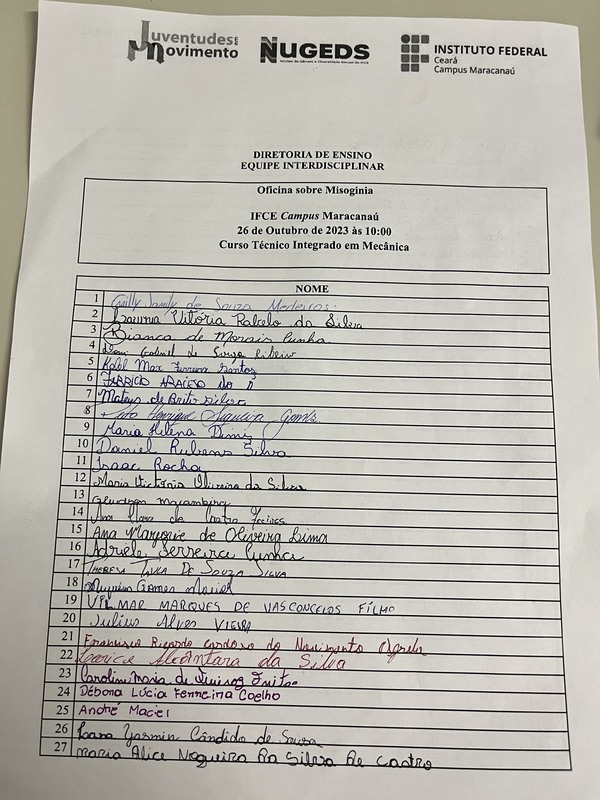 Juventudes em Movimento
NUGEDS
INSTITUTO FEDERAL
Ceará
Campus Maracanaú
DIRETORIA DE ENSINO
EQUIPE INTERDISCIPLINAR
Oficina sobre Misoginia
IFCE Campus Maracanaú
26 de Outubro de 2023 às 10:00
Curso Técnico Integrado em Mecânica
NOME
1 de Souza Medeiros
2 Vitória Rabelo da Silva
3 Bianca de Morais Cunha
4 Gabriel de Souza Ribeiro
5 Kalil Max Ferreira Santos
6 FABRICIO
7 Mateus de Brito Silva
8 Henrique Siqueira Gomes
9 Maria Helena Diniz
10 Daniel Rubens Silva
11 Isaac Rocha
12 Maria Victoria Oliveira da Silva
13
14 Ana Clara de Castro
15 Ana Maryorie de Oliveira Lima
16 Adriele Ferreira Cunha
17 DE SOUZA SILVA
18 Gomes Maciel
19 VILMAR MARQUES DE VASCONCELOS FILHO
20 Julius Alves VIEIRA
21 Francisco Ricardo Cardoso do Nascimento
22 Alcântara da Silva
23 Caroline Maria de Queiroz Freitas
24 Débora Lúcia Ferreira Coelho
25 André Maciel
26 Yasmin Cândido de Sousa
27 Maria Alice Nogueira Da Silva De Castro